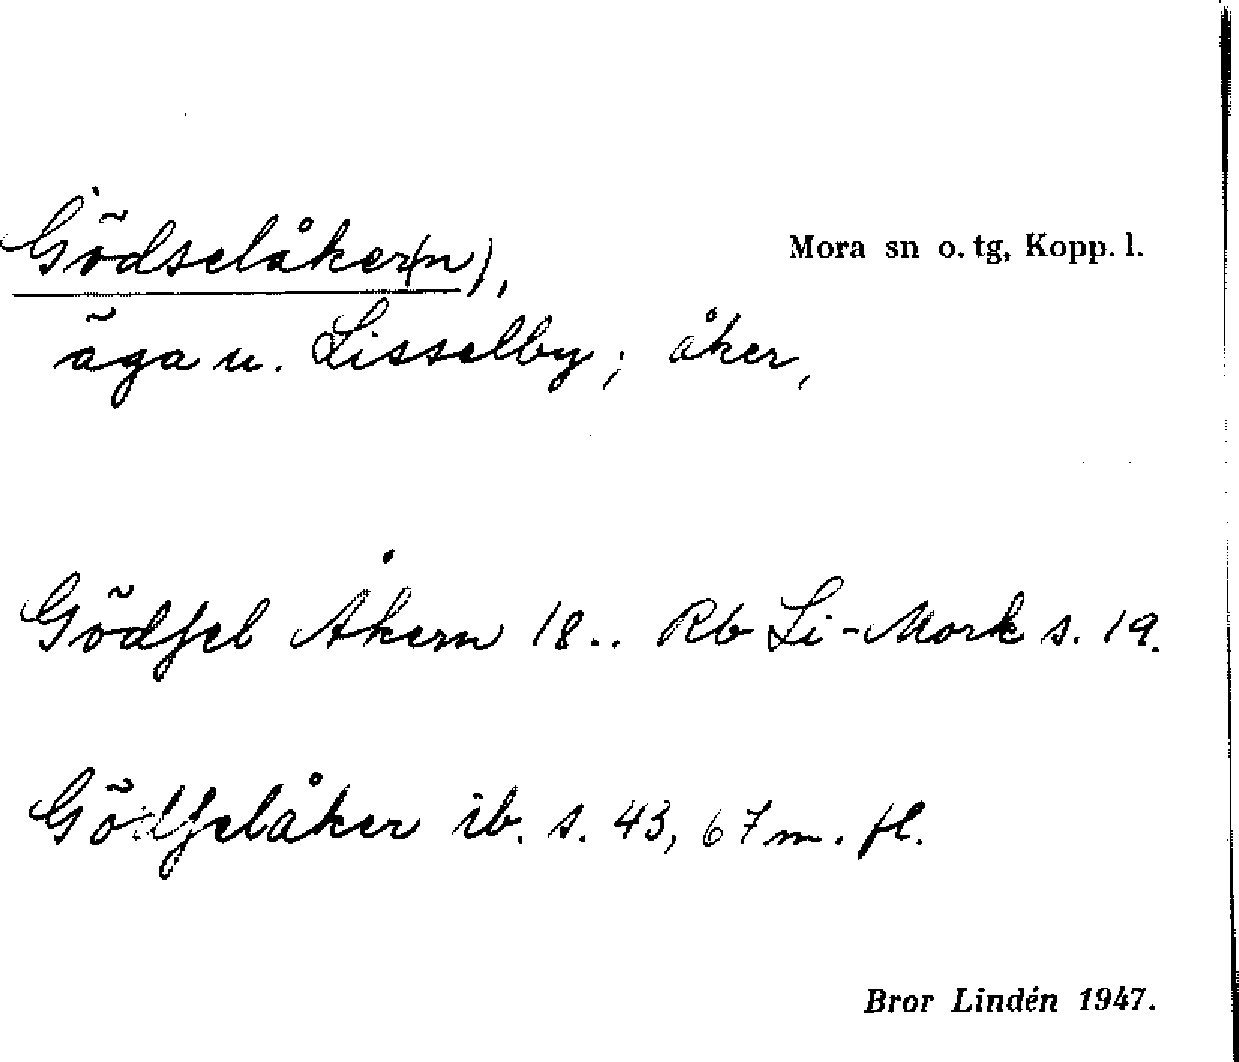 Gödselåker(n),
Mora sn o. tg, Kopp. l.
äga u. Lisselby; åker,
Gödſel Åkern 18.. Rb Li-Mork s. 19.
Gödſelåker ib. s. 43, 67 m. fl.
Bror Lindén 1947.